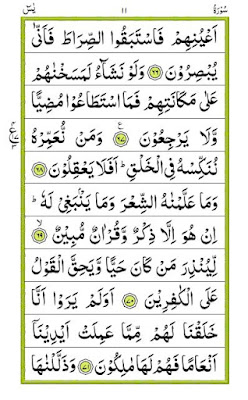 سُوْرَةُ ١١ يٰسٓ
اَعْيُنِهِمْ فَاسْتَبَقُوا الصِّرَاطَ فَاَنّٰى
يُبْصِرُوْنَ ﴿٦٦﴾ وَلَوْ نَشَآءُ لَمَسَخْنٰهُمْ
عَلٰى مَكَانَتِهِمْ فَمَا اسْتَطَاعُوْا مُضِيًّا
وَّلَا يَرْجِعُوْنَ ﴿٦٧﴾ وَمَنْ نُّعَمِّرْهُ
نُنَكِّسْهُ فِى الْخَلْقِ ؕ اَفَلَا يَعْقِلُوْنَ ﴿٦٨﴾
وَمَا عَلَّمْنٰهُ الشِّعْرَ وَمَا يَنْۢبَغِىْ لَهٗ ؕ
اِنْ هُوَ اِلَّا ذِكْرٌ وَّقُرْاٰنٌ مُّبِيْنٌ ﴿٦٩﴾
لِّيُنْذِرَ مَنْ كَانَ حَيًّا وَّيَحِقَّ الْقَوْلُ
عَلَى الْكٰفِرِيْنَ ﴿٧٠﴾ اَوَلَمْ يَرَوْا اَنَّا
خَلَقْنَا لَهُمْ مِّمَّا عَمِلَتْ اَيْدِيْنَاۤ
اَنْعَامًا فَهُمْ لَهَا مٰلِكُوْنَ ﴿٧١﴾ وَذَلَّلْنٰهَا